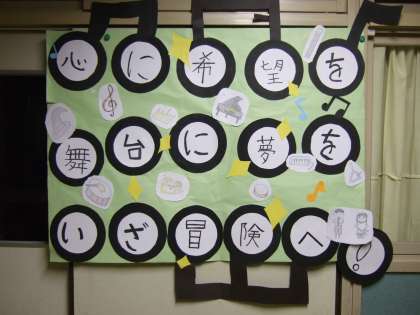 心に希望を
舞台に夢を
いざ冒険へ!